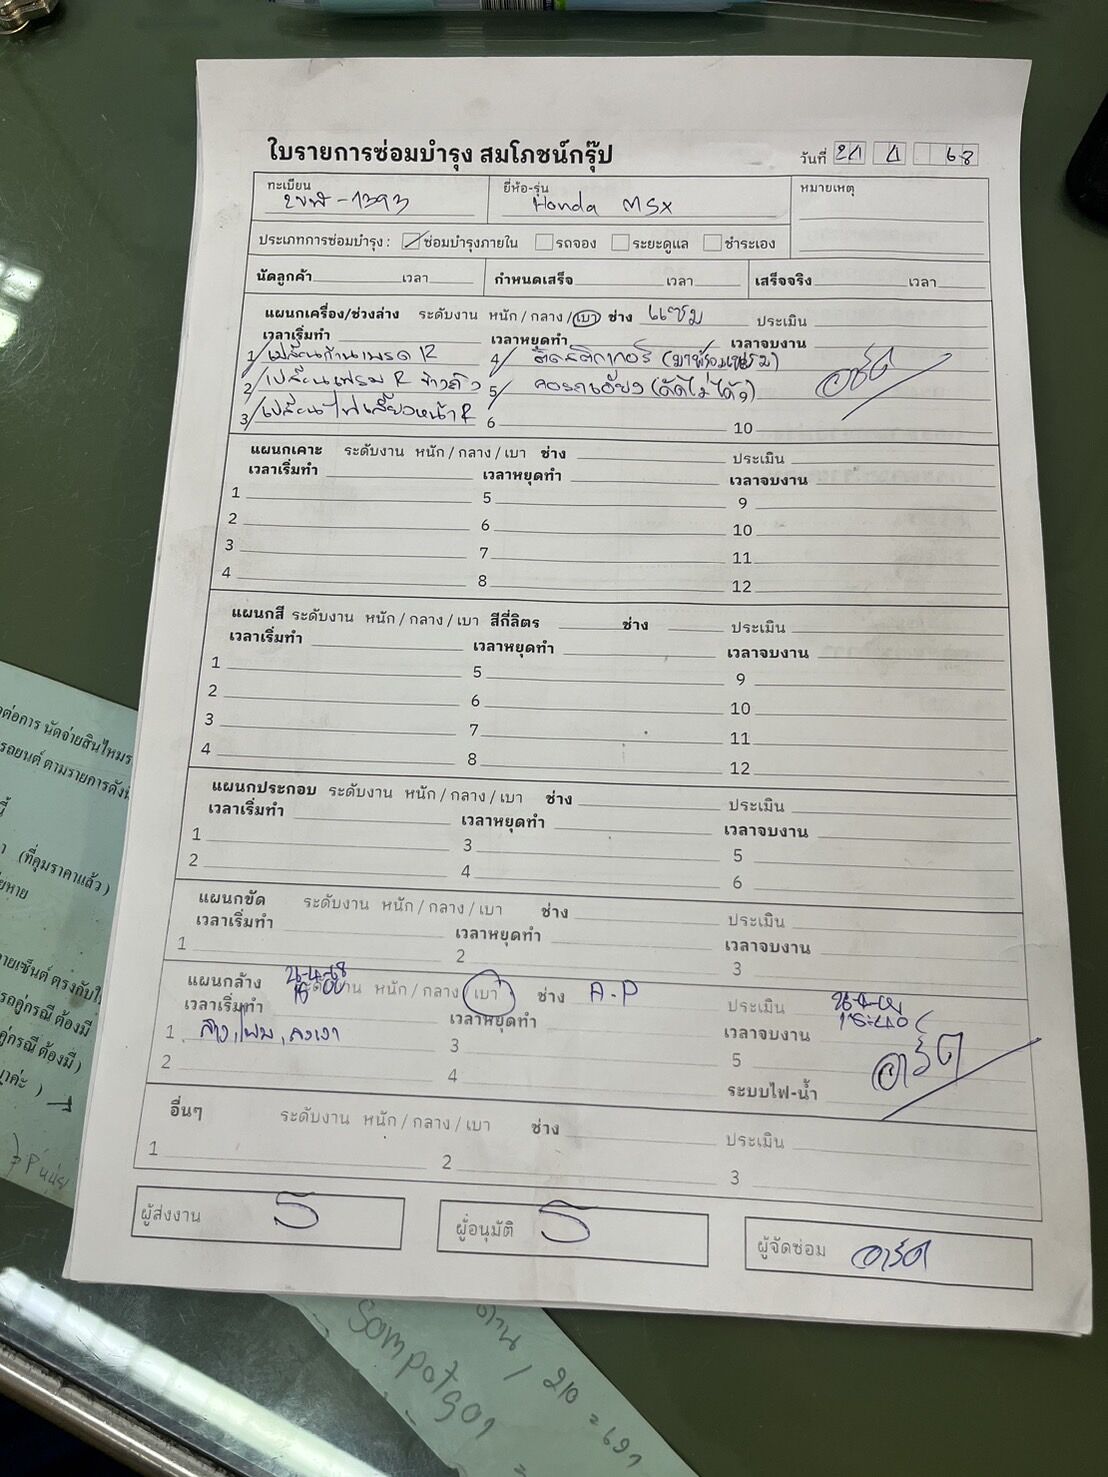 ใบรายการซ่อมบำรุง สมโภชน์กรุ๊ป
วันที่ 68
ทะเบียน -1393
ยี่ห้อ-รุ่น Honda MSX
หมายเหตุ
ประเภทการซ่อมบำรุง : ซ่อมบำรุงภายใน รถจอง ระยะดูแล ชำระเอง
นัดลูกค้า เวลา กำหนดเสร็จ เวลา เสร็จจริง เวลา
แผนกเครื่อง/ช่วงล่าง ระดับงาน หนัก / กลาง / เบา ช่าง แชม ประเมิน
เวลาเริ่มทำ เวลาหยุดทำ เวลาจบงาน
1 เปลี่ยนก้านเบรค R 4 ติดสติกเกอร์ (มาพร้อมเฟรม)
2 เปลี่ยนเฟรม R 5 คอรถเอียง (ดัดไม่ได้)
3 เปลี่ยนไฟเลี้ยวหน้า R 6 10
แผนกเคาะ ระดับงาน หนัก / กลาง / เบา ช่าง ประเมิน
เวลาเริ่มทำ เวลาหยุดทำ เวลาจบงาน
1 5 9
2 6 10
3 7 11
4 8 12
แผนกสี ระดับงาน หนัก / กลาง / เบา สีกี่ลิตร ช่าง ประเมิน
เวลาเริ่มทำ เวลาหยุดทำ เวลาจบงาน
1 5 9
2 6 10
3 7 11
4 8 12
แผนกประกอบ ระดับงาน หนัก / กลาง / เบา ช่าง ประเมิน
เวลาเริ่มทำ เวลาหยุดทำ เวลาจบงาน
1 3 5
2 4 6
แผนกขัด ระดับงาน หนัก / กลาง / เบา ช่าง ประเมิน
เวลาเริ่มทำ เวลาหยุดทำ เวลาจบงาน
1 2 3
แผนกล้าง ระดับงาน หนัก / กลาง / เบา ช่าง A.P ประเมิน
เวลาเริ่มทำ เวลาหยุดทำ เวลาจบงาน
1 3 5
2 4 ระบบไฟ-น้ำ
อื่นๆ ระดับงาน หนัก / กลาง / เบา ช่าง ประเมิน
1 2 3
ผู้ส่งงาน ผู้อนุมัติ ผู้จัดซ่อม อาร์ต
(ที่คุมราคาแล้ว)
Sompotgor